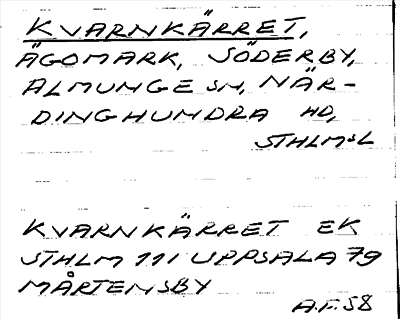 KVARNKÄRRET,
ÄGOMARK, SÖDERBY,
ALMUNGE SN, NÄR-
DINGHUNDRA HD,
STHLMSL
KVARNKÄRRET EK
STHLM 111 UPPSALA 79
MÅRTENSBY
A.F. 58